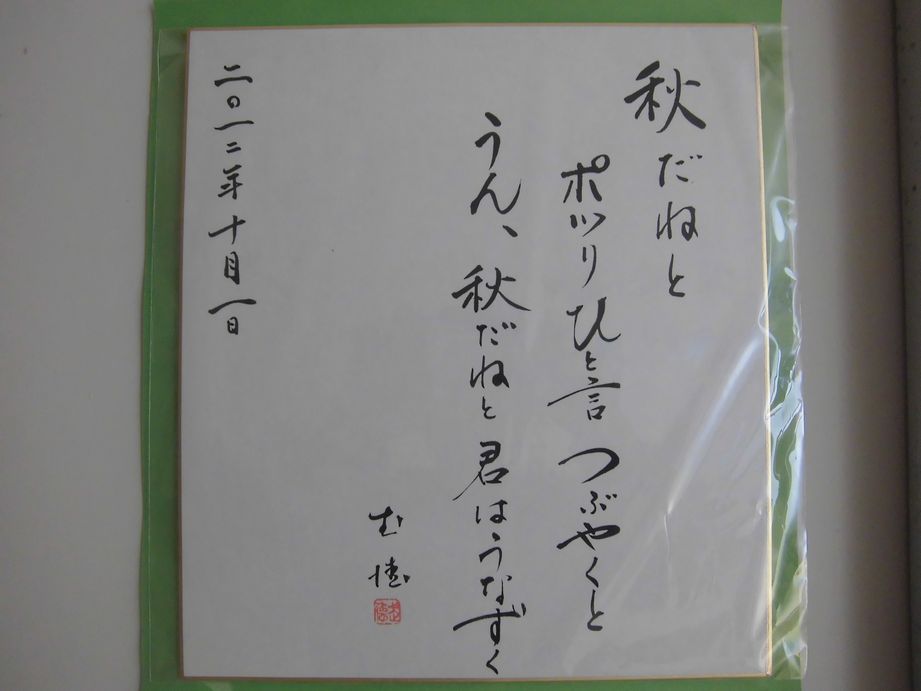 秋だねと
ポツリひと言つぶやくと
うん、秋だねと君はうなずく
二〇一二年十月一日